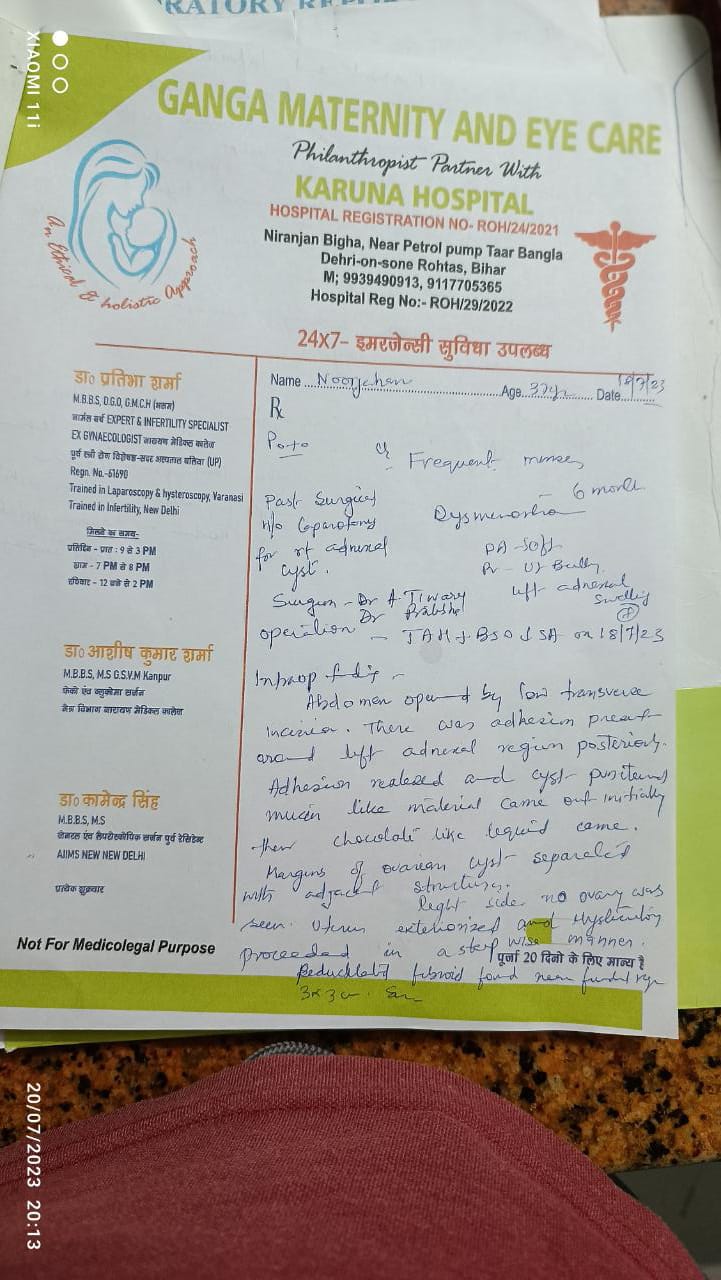 RATORY REP
XIAOMI 11i
GANGA MATERNITY AND EYE CARE
Philanthropist Partner With
KARUNA HOSPITAL
HOSPITAL REGISTRATION NO- ROH/24/2021
Niranjan Bigha, Near Petrol pump Taar Bangla
Dehri-on-sone Rohtas, Bihar
M; 9939490913, 9117705365
Hospital Reg No:- ROH/29/2022
An Ethical & holistic Approach
24x7- इमरजेन्सी सुविधा उपलब्ध
डा० प्रतिभा शर्मा
M.B.B.S, D.G.O, G.M.C.H (असम)
नार्मल बर्थ EXPERT & INFERTILITY SPECIALIST
EX GYNAECOLOGIST नारायण मेडिकल कालेज
पूर्व स्त्री रोग विशेषज्ञ-सदर अस्पताल बलिया (UP)
Regn. No.-61690
Trained in Laparoscopy & hysteroscopy, Varanasi
Trained in Infertility, New Delhi
मिलने का समय-
प्रतिदिन - प्रातः 9 से 3 PM
शाम - 7 PM से 8 PM
रविवार - 12 बजे से 2 PM
डा० आशीष कुमार शर्मा
M.B.B.S, M.S G.S.V.M Kanpur
फेको एवं ग्लुकोमा सर्जन
नेत्र विभाग नारायण मेडिकल कालेज
डा० कामेन्द्र सिंह
M.B.B.S, M.S
जेनरल एंव लैपरोस्कोपिक सर्जन पुर्व रेजिडेन्ट
AIIMS NEW NEW DELHI
प्रत्येक शुक्रवार
Not For Medicolegal Purpose
Name Noorjahan Age 37yr Date
Rx
P0+0
Frequent menses
Past Surgical - 6 month
h/o Laparotomy Dysmenorrhea
for rt adnexal PA - Soft
cyst. Bulky
left adnexal
Surgeon - Dr A. Tiwary Swelling
Dr
operation - TAH + BSO ↓ SA on 18/7/23
Intraop fdig -
Abdomen opened by low transverse
incision. There was adhesion present
around left adnexal region posteriorly.
Adhesion released and cyst punctured
mucin like material came out initially
then chocolate like liquid came.
Margins of ovarian cyst separated
with adjacent structures.
Right side no ovary was
seen. Uterus exteriorized and
proceeded in a step wise manner.
पूर्जा 20 दिनो के लिए मान्य है
fibroid found near
3x3 cm.
20/07/2023 20:13